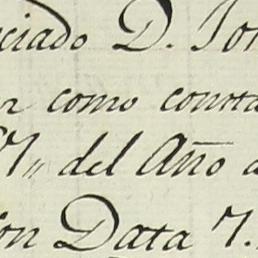 ciado D. Jo
n como consta
7,, del Año a
on Data 7.